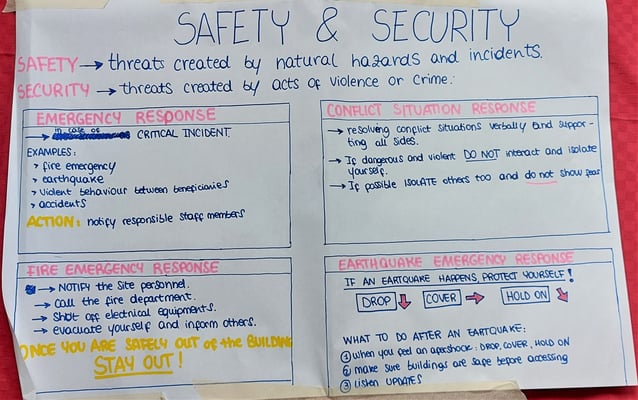 SAFETY & SECURITY
SAFETY → threats created by natural hazards and incidents.
SECURITY → threats created by acts of violence or crime.
EMERGENCY RESPONSE
→ in case of CRITICAL INCIDENT
EXAMPLES:
> fire emergency
> earthquake
> violent behaviour between beneficiaries
> accidents
ACTION: notify responsible staff members
CONFLICT SITUATION RESPONSE
→ resolving conflict situations verbally and suppor-
ting all sides.
→ If dangerous and violent DO NOT interact and isolate
yourself.
→ If possible ISOLATE others too and do not show fear
FIRE EMERGENCY RESPONSE
→ NOTIFY the site personnel.
→ call the fire department.
→ Shut off electrical equipments.
→ evacuate yourself and inform others.
ONCE YOU ARE SAFELY OUT of the BUILDING
STAY OUT!
EARTHQUAKE EMERGENCY RESPONSE
IF AN EARTQUAKE HAPPENS, PROTECT YOURSELF!
DROP ↓ COVER → HOLD ON ↘
WHAT TO DO AFTER AN EARTQUAKE:
① when you feel an afershock: DROP, COVER, HOLD ON
② make sure buildings are safe before accessing
③ listen UPDATES